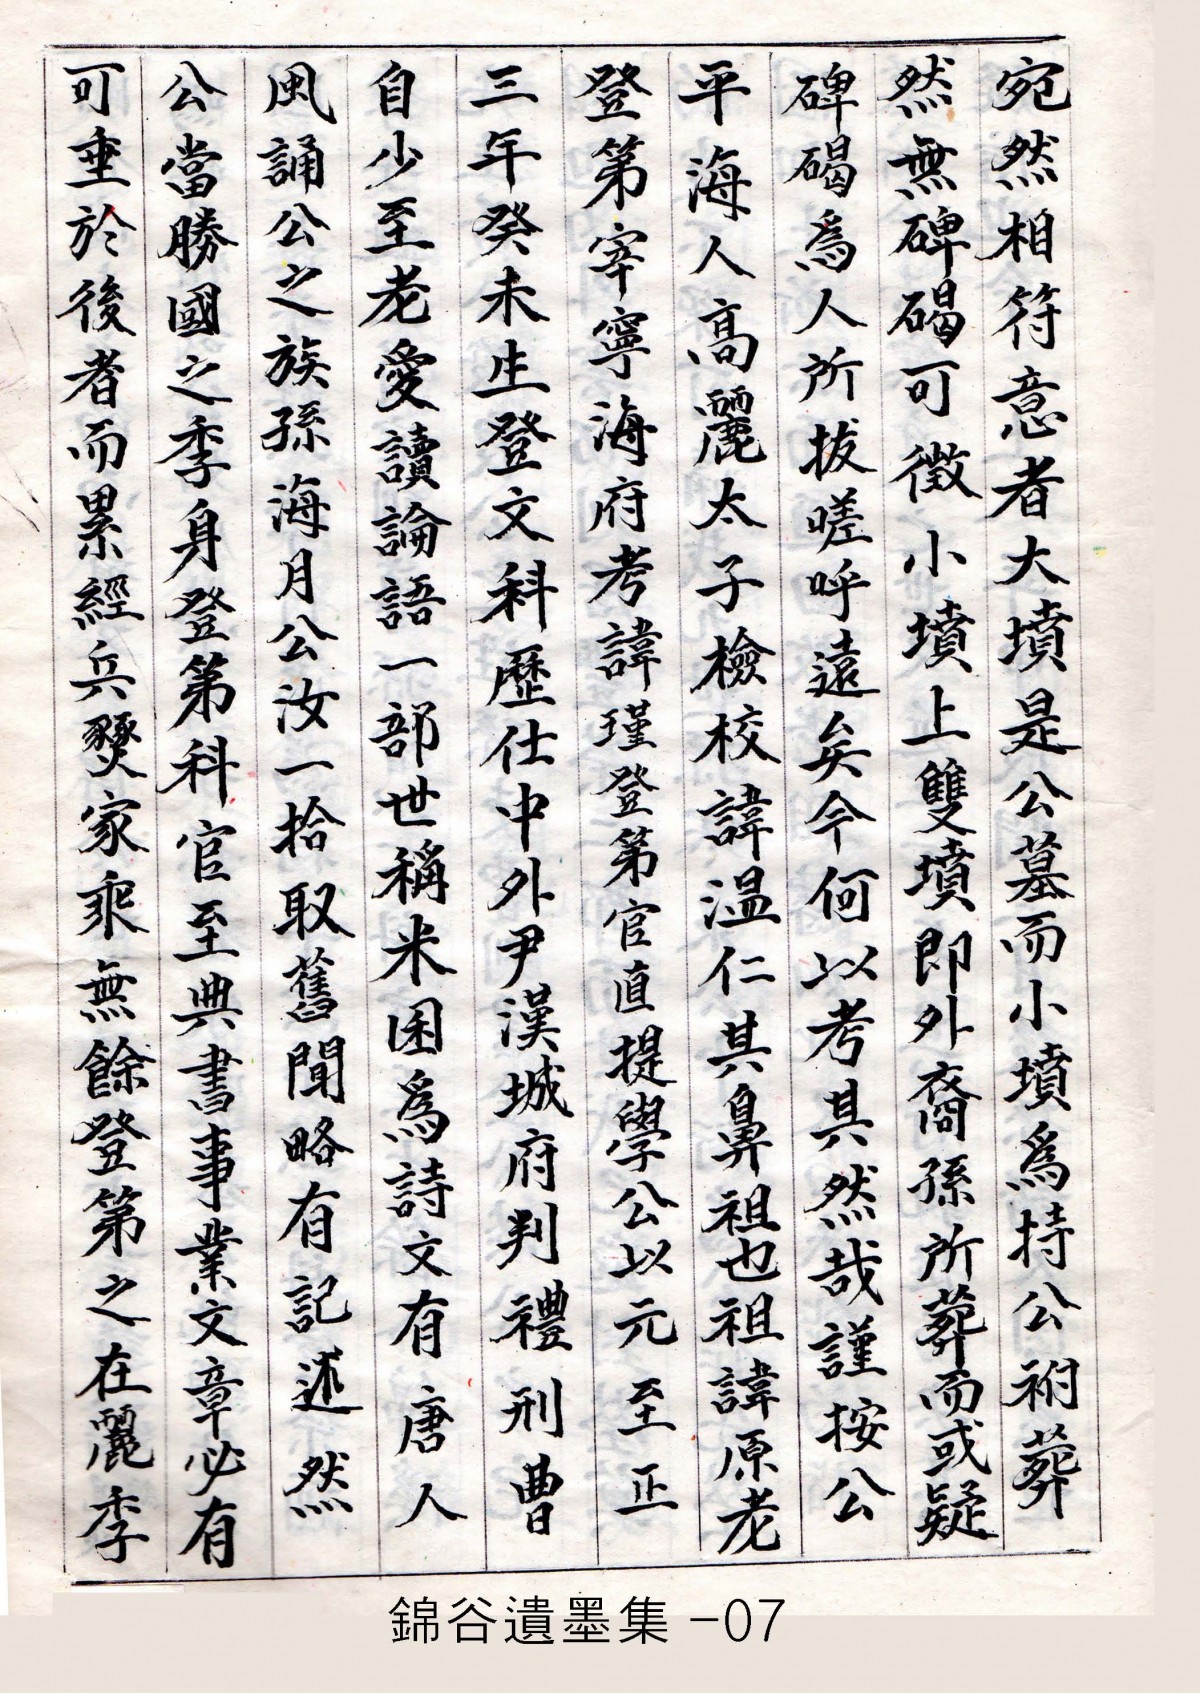 宛然相符意者大墳是公墓而小墳爲持公祔葬
然無碑碣可徵小墳上雙墳即外裔孫所葬而或疑
碑碣爲人所拔嗟呼遠矣今何以考其然哉謹按公
平海人高麗太子檢校諱溫仁其鼻祖也祖諱原老
登第宰寧海府考諱瑾登第官直提學公以元至正
三年癸未生登文科歷仕中外尹漢城府判禮刑曹
自少至老愛讀論語一部世稱米囷爲詩文有唐人
風誦公之族孫海月公汝一拾取舊聞略有記述然
公當勝國之季身登第科官至典書事業文章必有
可垂於後者而累經兵燹家乘無餘登第之在麗季
錦谷遺墨集 -07